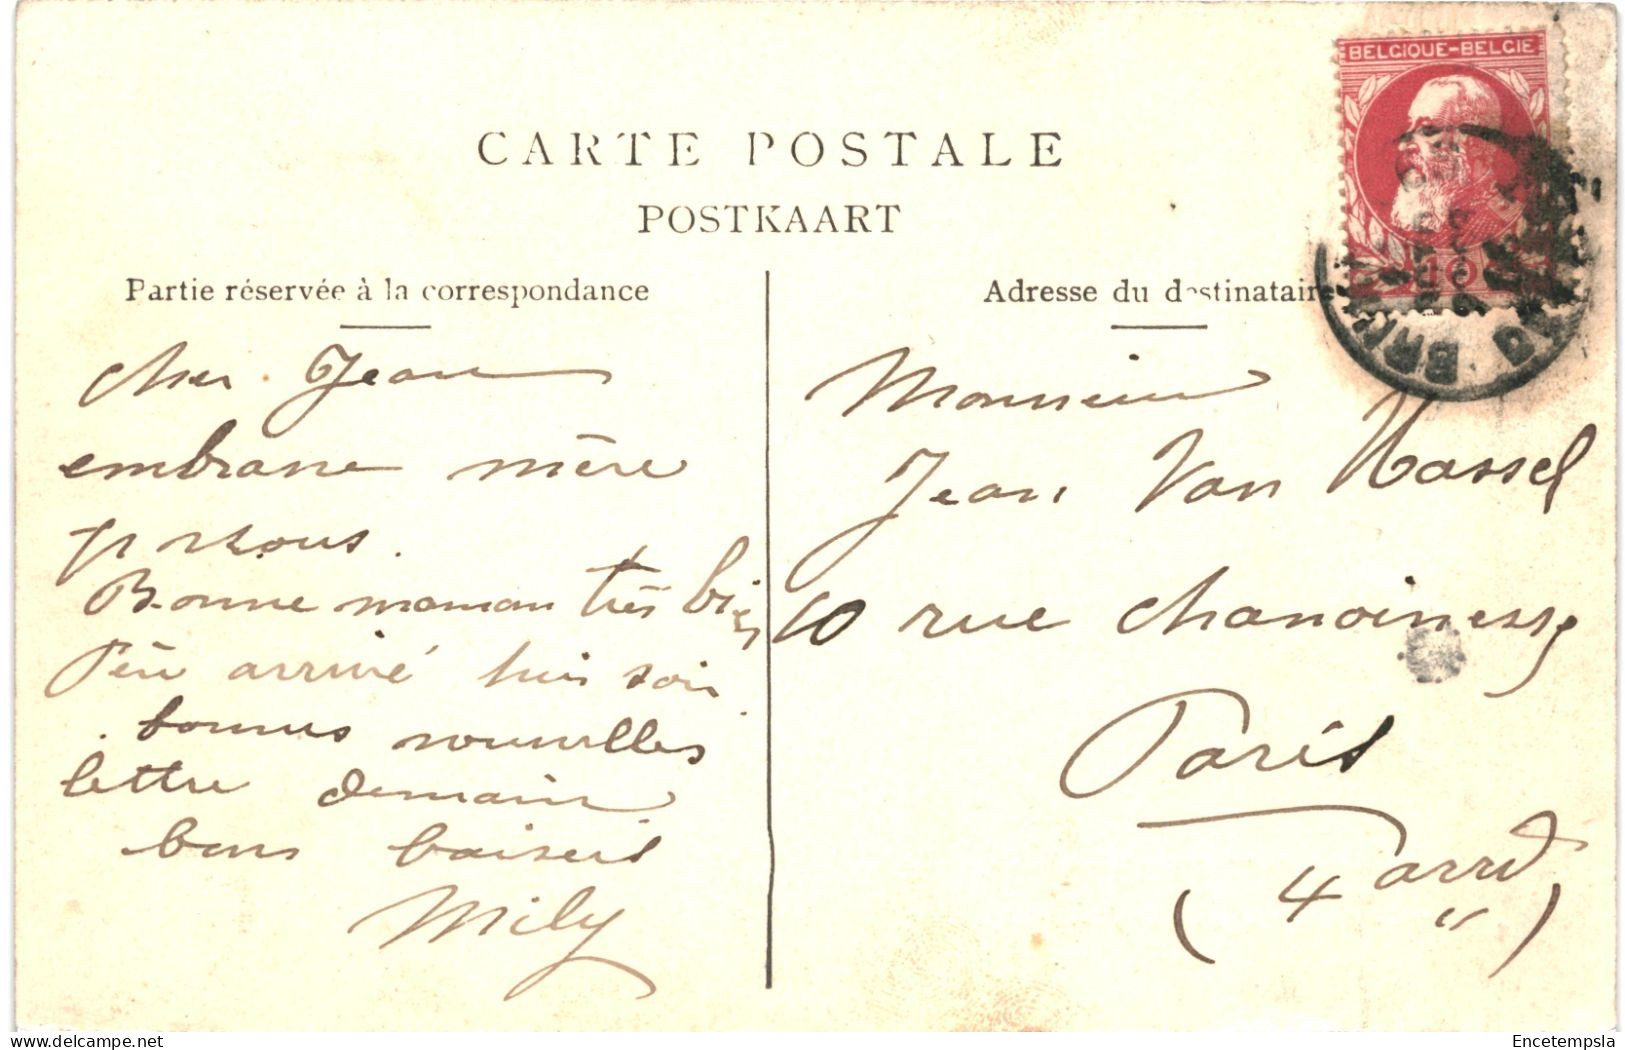 BELGIQUE-BELGIE
10
CARTE POSTALE
POSTKAART
Partie réservée à la correspondance
cher Jean
embrasse mère
pr nous.
Bonne maman très bien
Père arrivé hier soir
bonnes nouvelles
lettre demain
bons baisers
Mily
Adresse du destinataire
Monsieur
Jean Van Hassel
10 rue Chanoinesse
Paris
(4 arrd)
Encetempsla